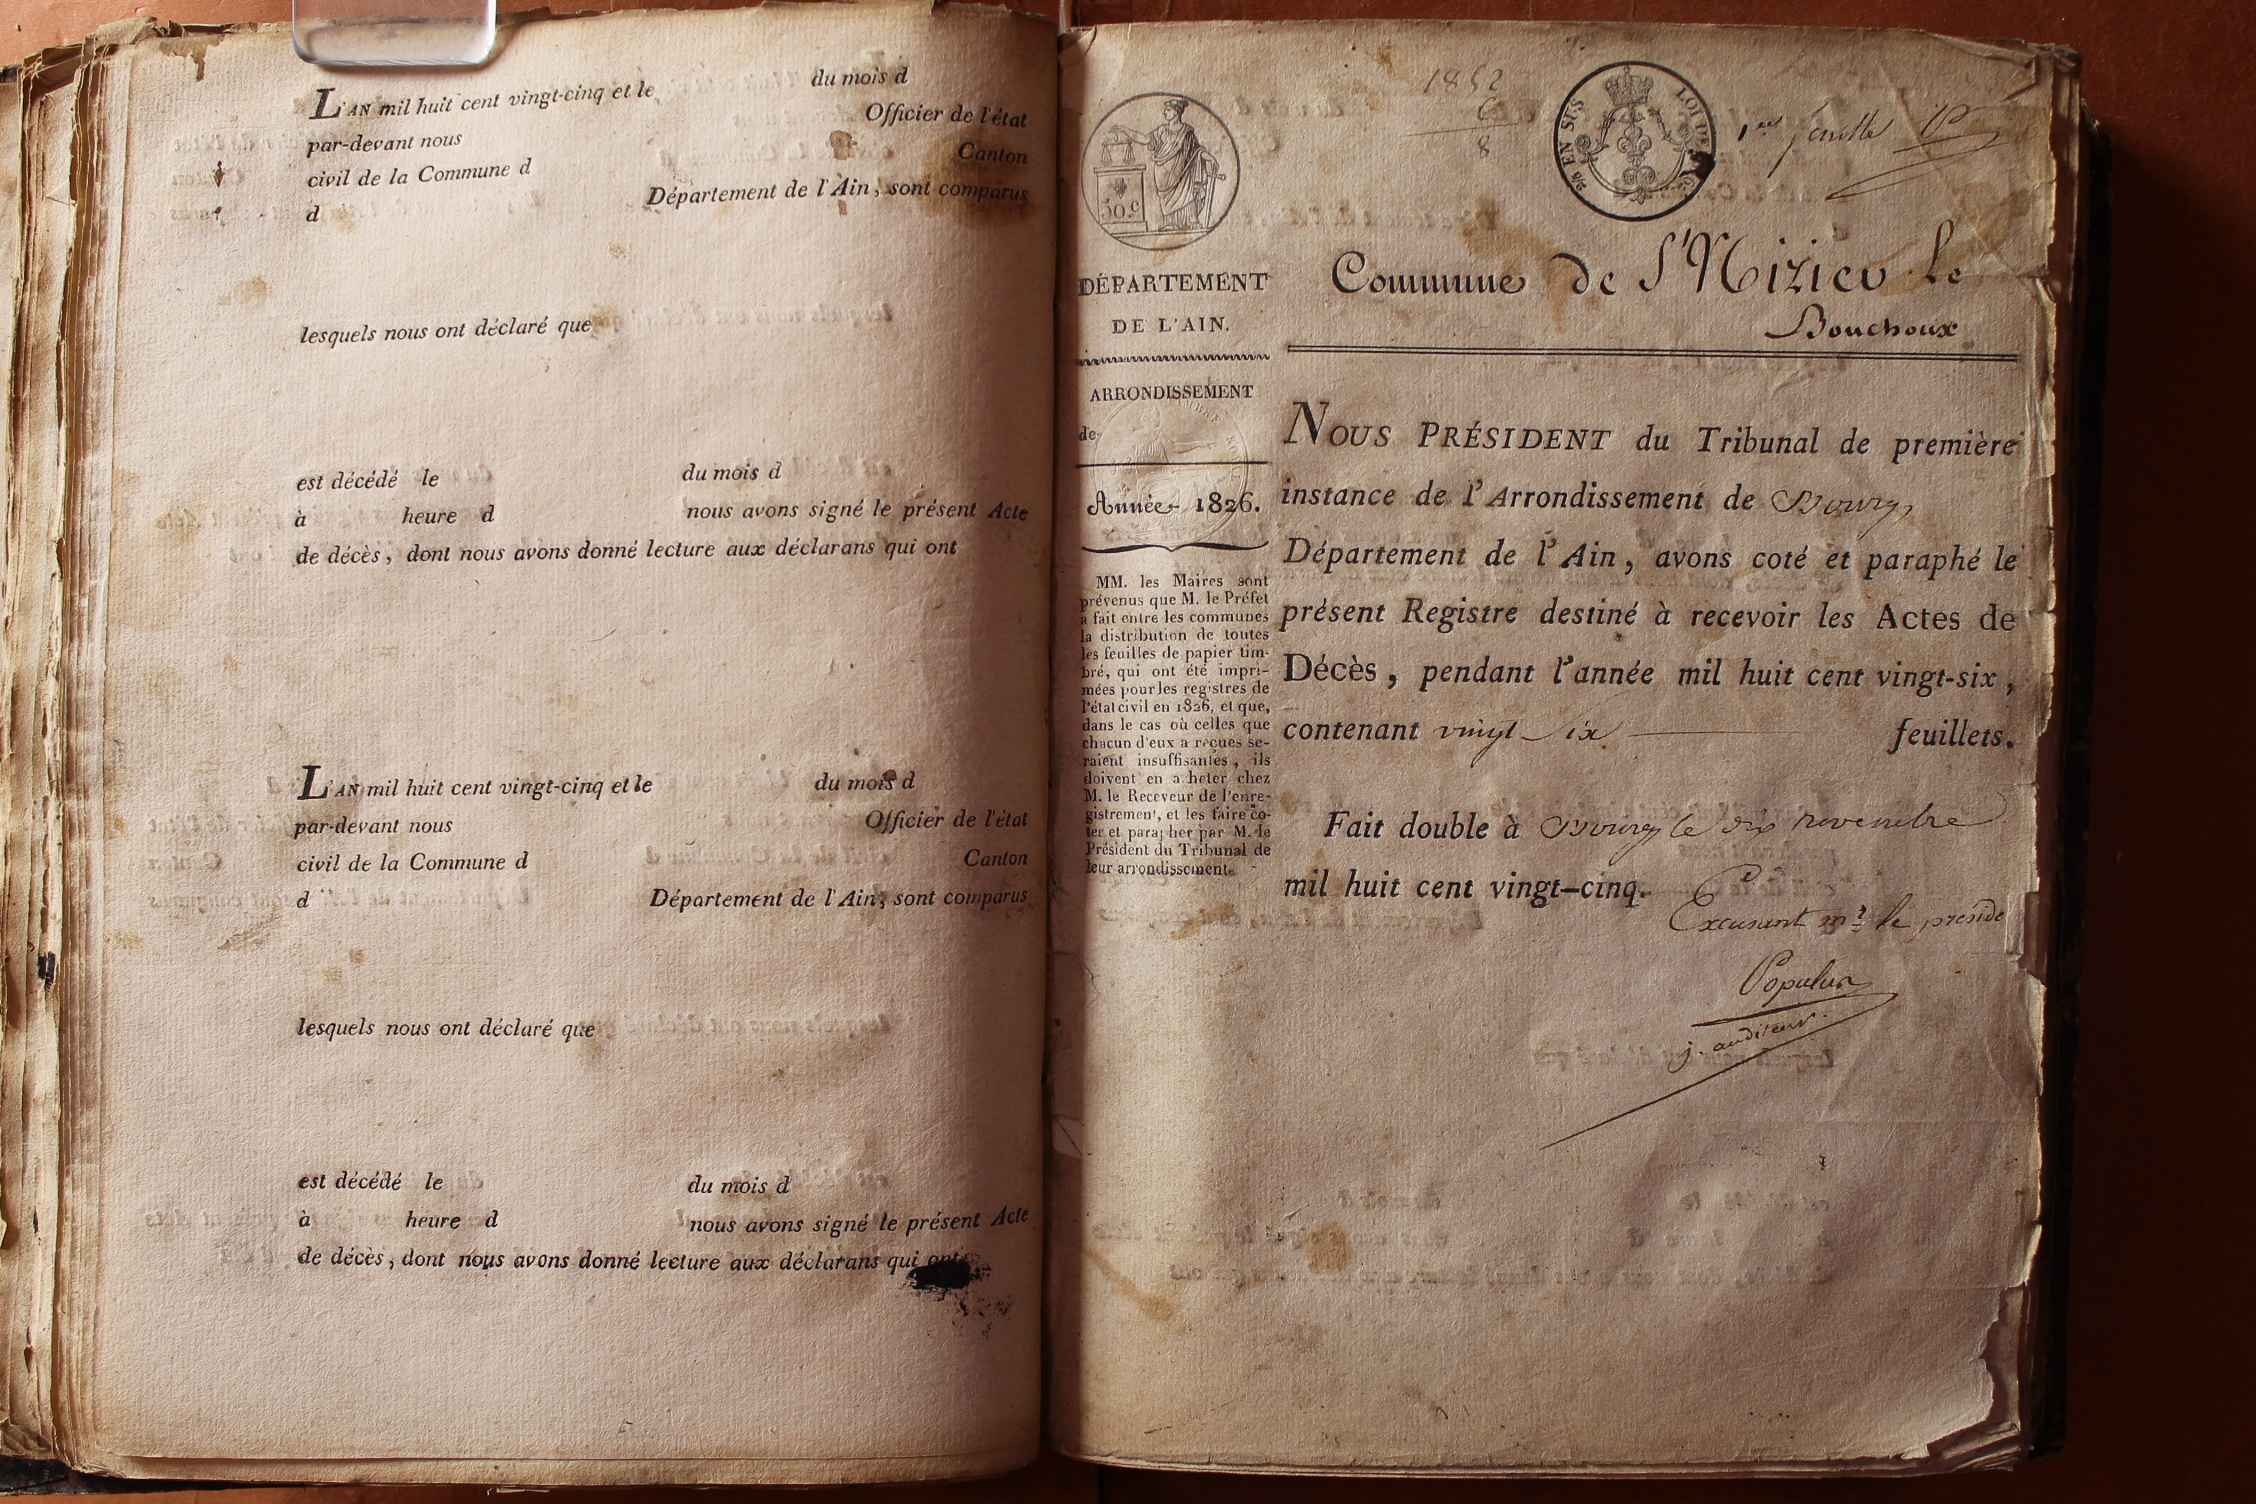 L'AN mil huit cent vingt-cinq et le du mois d
par-devant nous Officier de l'état
civil de la Commune d Canton
d Département de l'Ain, sont comparus
lesquels nous ont déclaré que
est décédé le du mois d
à heure d nous avons signé le présent Acte
de décès, dont nous avons donné lecture aux déclarans qui ont
L'AN mil huit cent vingt-cinq et le du mois d
par-devant nous Officier de l'état
civil de la Commune d Canton
d Département de l'Ain, sont comparus
lesquels nous ont déclaré que
est décédé le du mois d
à heure d nous avons signé le présent Acte
de décès, dont nous avons donné lecture aux déclarans qui ont
1852
6
8
50 c
EN SUS
LOI DE
DÉPARTEMENT
DE L'AIN.
ARRONDISSEMENT
de
Année 1826.
MM. les Maires sont
prévenus que M. le Préfet
a fait entre les communes
la distribution de toutes
les feuilles de papier tim-
bré, qui ont été impri-
mées pour les registres de
l'état civil en 1826, et que,
dans le cas où celles que
chacun d'eux a reçues se-
raient insuffisantes, ils
doivent en acheter chez
M. le Receveur de l'enre-
gistrement, et les faire co-
ter et parapher par M. le
Président du Tribunal de
leur arrondissement.
Commune de St Nizier le
Bouchoux
NOUS PRÉSIDENT du Tribunal de première
instance de l'Arrondissement de Bourg,
Département de l'Ain, avons coté et paraphé le
présent Registre destiné à recevoir les Actes de
Décès, pendant l'année mil huit cent vingt-six,
contenant vingt six feuillets.
Fait double à Bourg le dix novembre
mil huit cent vingt-cinq.
Excusant mr le préside
Populus
j. auditeur.